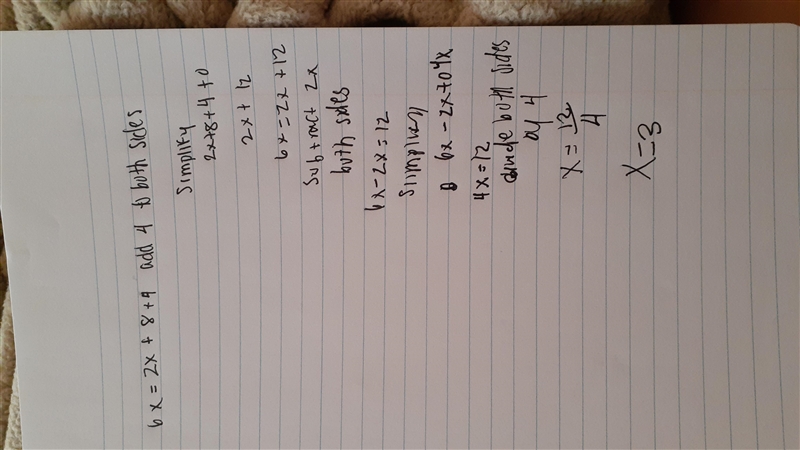 6x = 2x + 8 + 4 add 4 to both sides
Simplify
2x+8+4+0
2x + 12
6x = 2x + 12
Subtract 2x
both sides
6x-2x=12
Simplify
6x-2x to 4x
4x=12
divide both sides
by 4
x = 12/4
x=3